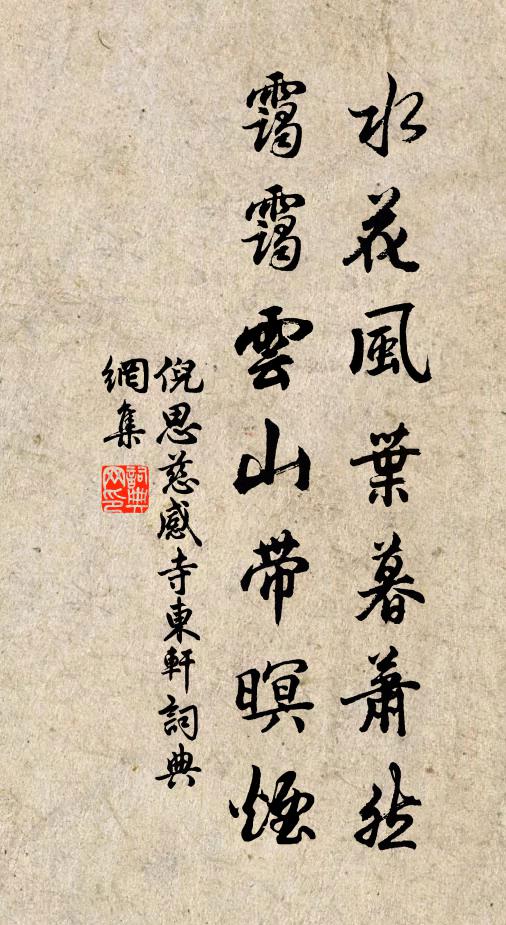 水花風葉暮蕭然
靄靄雲山帶暝煙
倪思慈感寺東軒詞典
網集
詞典
網印